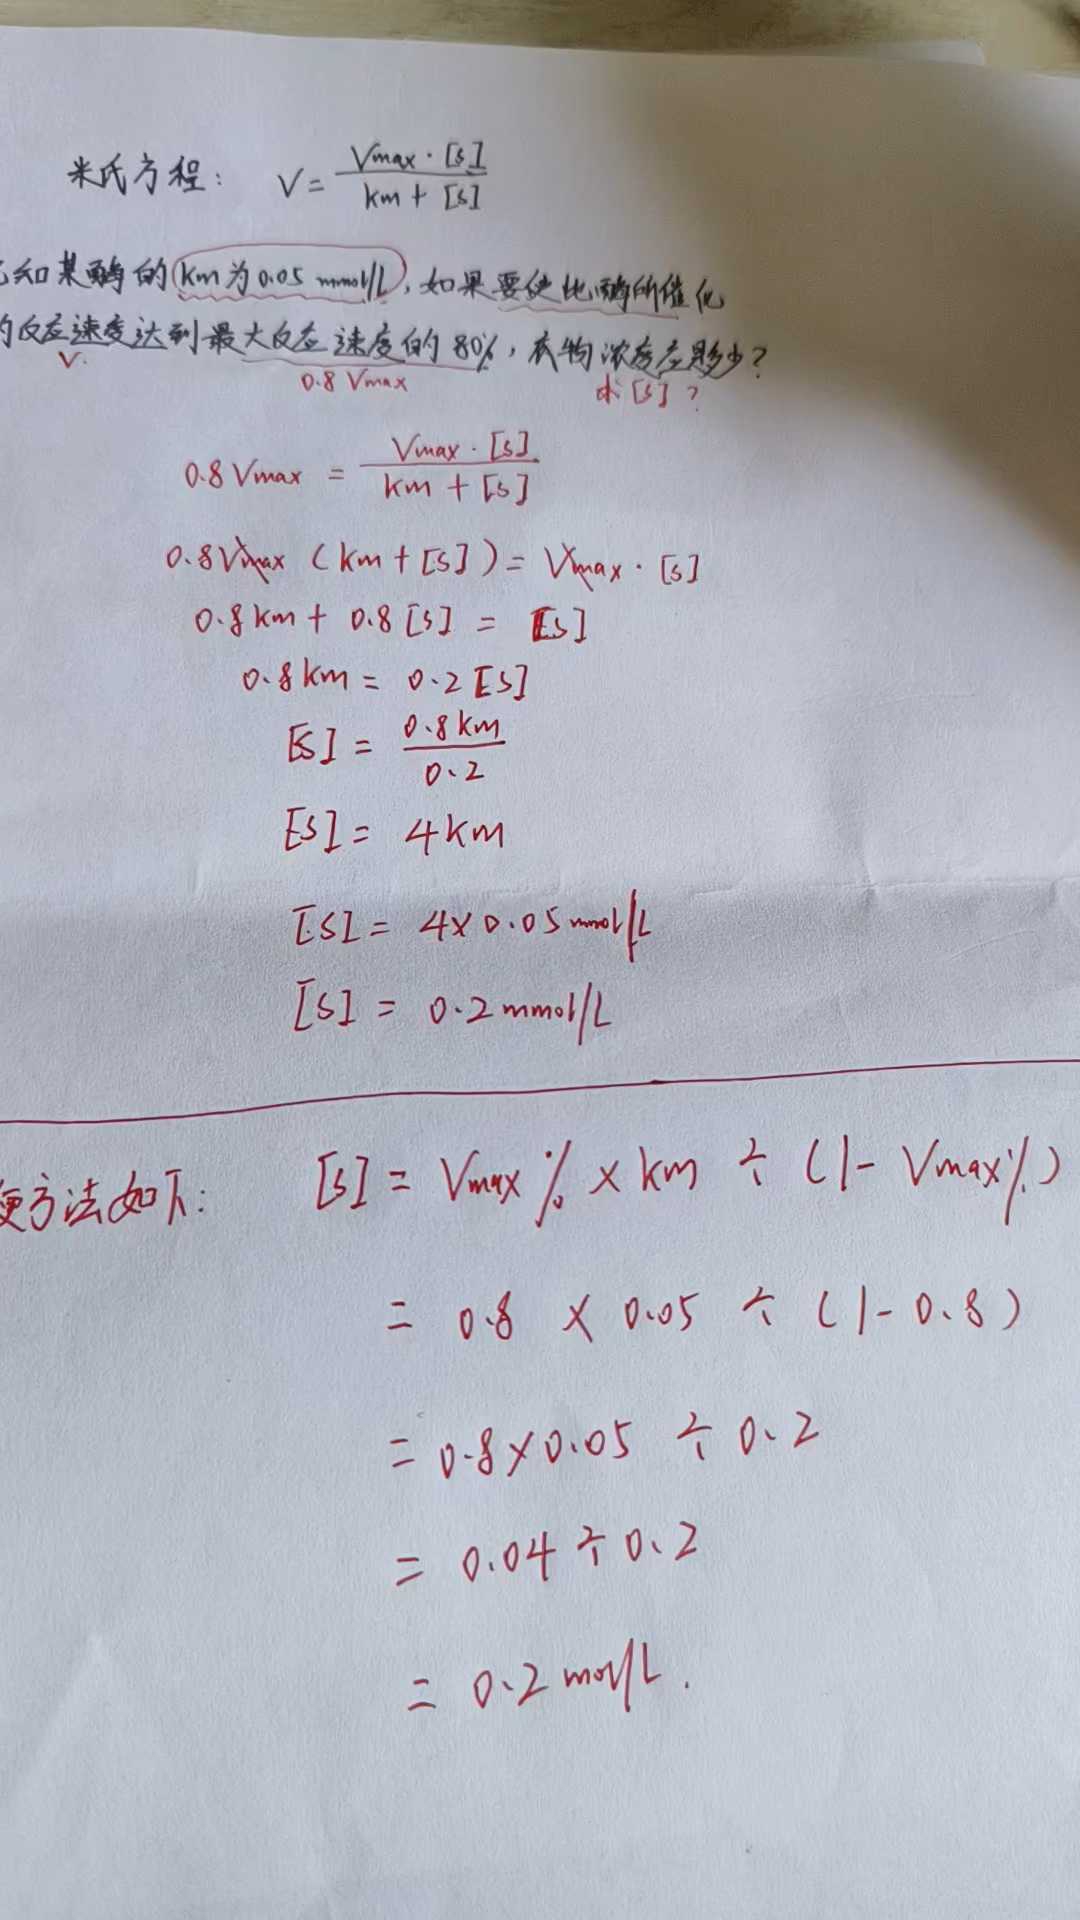 米氏方程： V = Vmax · [S] / km + [S]
知某酶的 km为0.05 mmol/L, 如果要使此酶的催化
的反应速度达到最大反应速度的80%, 底物浓度应是多少?
V. 0.8 Vmax 求 [S] ?
0.8 Vmax = Vmax · [S] / km + [S]
0.8 Vmax (km + [S]) = Vmax · [S]
0.8 km + 0.8 [S] = [S]
0.8 km = 0.2 [S]
[S] = 0.8 km / 0.2
[S] = 4 km
[S] = 4 × 0.05 mmol/L
[S] = 0.2 mmol/L
便方法如下: [S] = Vmax% × km ÷ (1 - Vmax%)
= 0.8 × 0.05 ÷ (1 - 0.8)
= 0.8 × 0.05 ÷ 0.2
= 0.04 ÷ 0.2
= 0.2 mol/L.